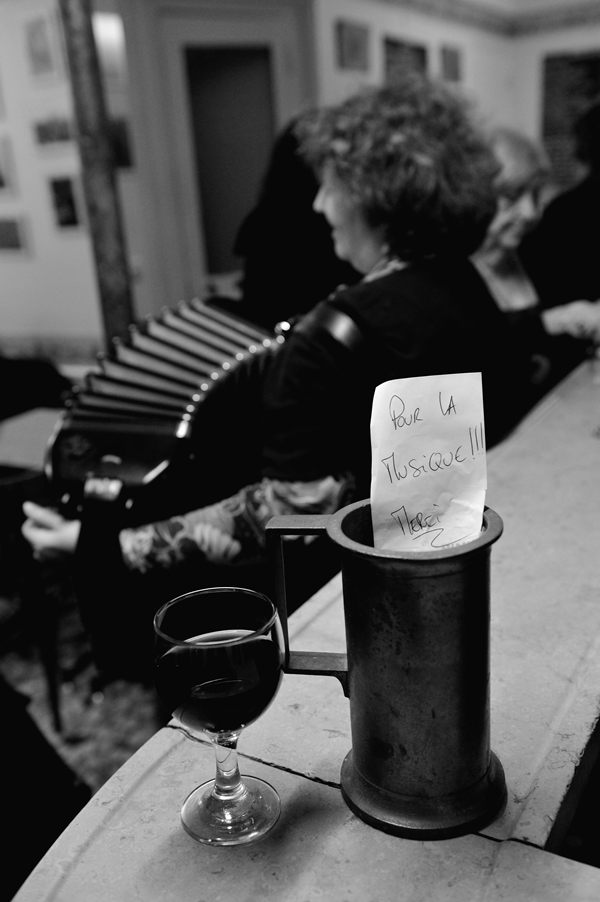 POUR LA
MUSIQUE!!!
MERCI